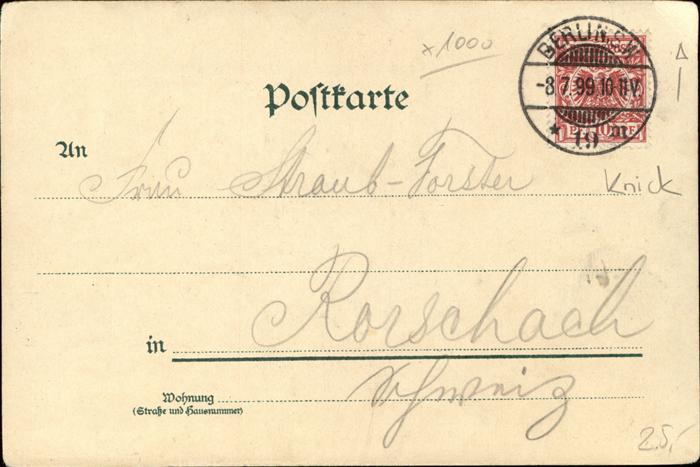 x1000
BERLIN.S.W.
-8.7.99.10-11V.
* 19 m
Postkarte
An
Frau Straub-Forster
Knick
in
Rorschach
Schweiz
Wohnung
(Straße und Hausnummer)
2.5,-